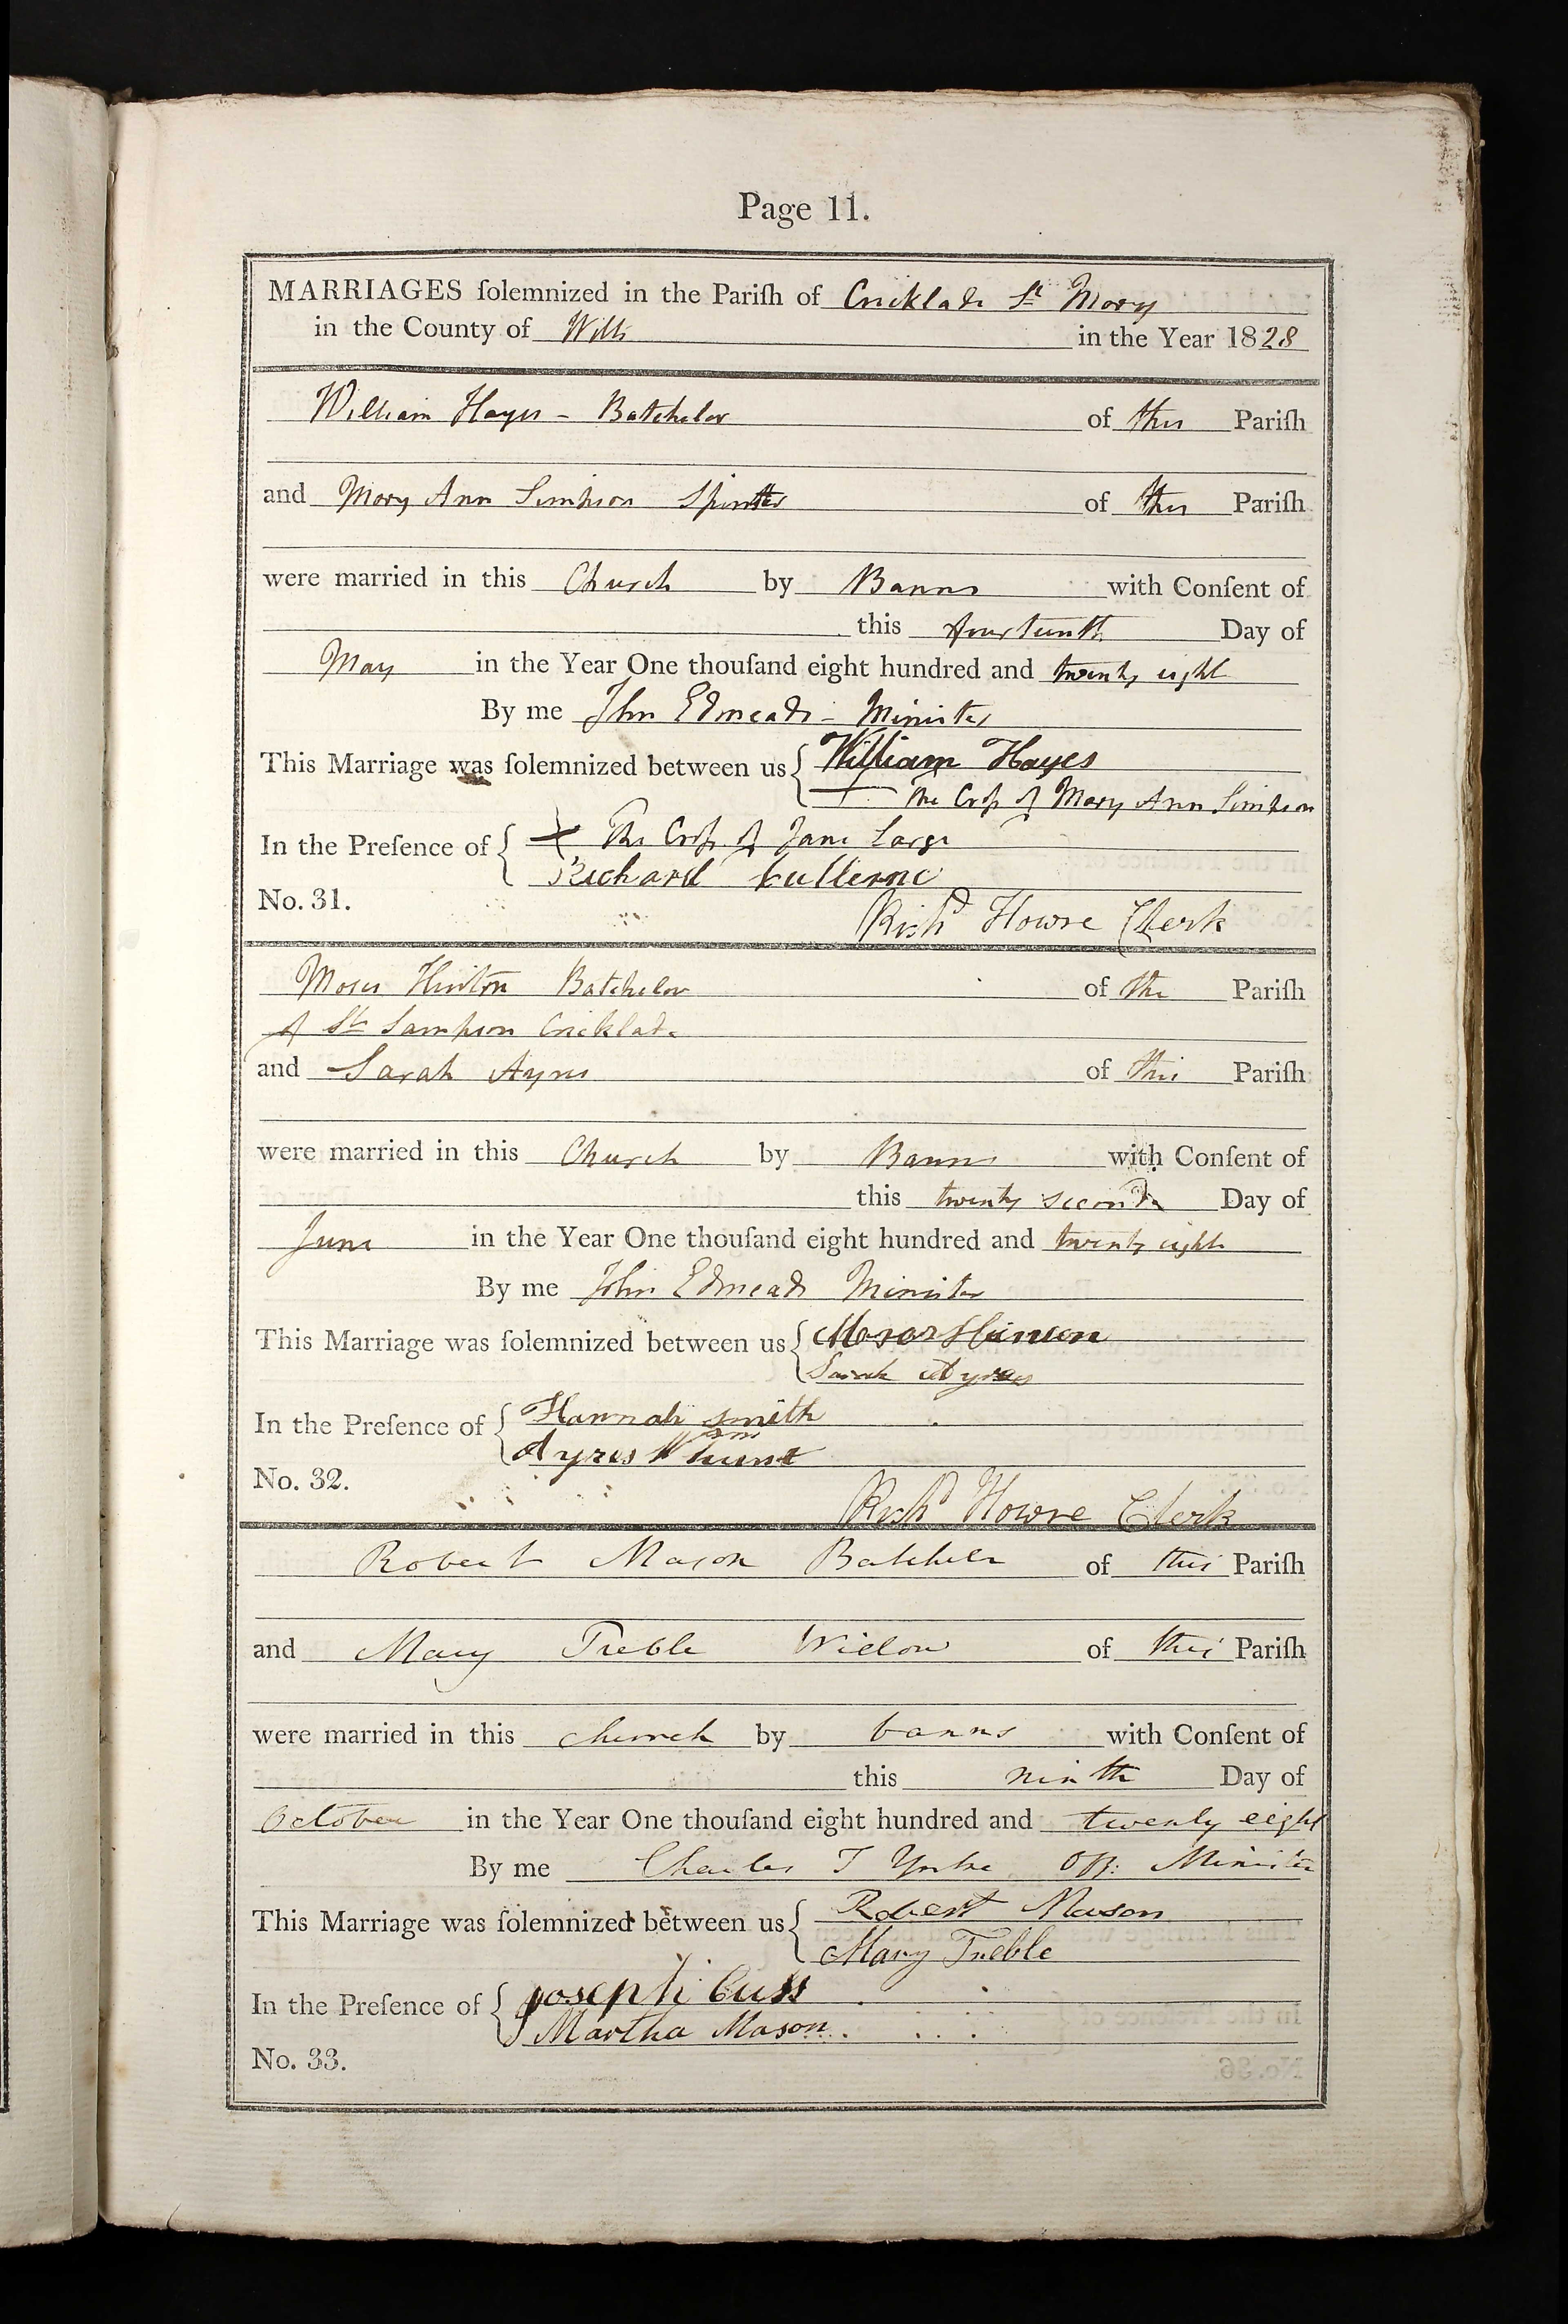 Page 11.
MARRIAGES ſolemnized in the Pariſh of Cricklade St Mary
in the County of Wilts in the Year 1828
William Hayes - Batchelor of this Pariſh
and Mary Ann Simpson Spinster of this Pariſh
were married in this Church by Banns with Conſent of
this fourteenth Day of
May in the Year One thouſand eight hundred and twenty eight
By me John Edmeads - Minister
This Marriage was ſolemnized between us William Hayes
+ The Croſs of Mary Ann Simpson
In the Preſence of + The Croſs of Jane Large
Richard
No. 31.
Richd Howse Clerk
Moses Hinton Batchelor of the Pariſh
of St Sampson Cricklade
and Sarah Ayres of this Pariſh
were married in this Church by Banns with Conſent of
this twenty second Day of
June in the Year One thouſand eight hundred and twenty eight
By me John Edmeads Minister
This Marriage was ſolemnized between us Moses Hinton
Sarah Ayres
In the Preſence of Hannah Smith
Ayres
No. 32.
Richd Howse Clerk
Robert Mason Batchelor of this Pariſh
and Mary Treble Widow of this Pariſh
were married in this church by banns with Conſent of
this ninth Day of
October in the Year One thouſand eight hundred and twenty eight
By me Charles T Yorke Off: Minister
This Marriage was ſolemnized between us Robert Mason
Mary Treble
In the Preſence of Joseph Cuss
Martha Mason
No. 33.